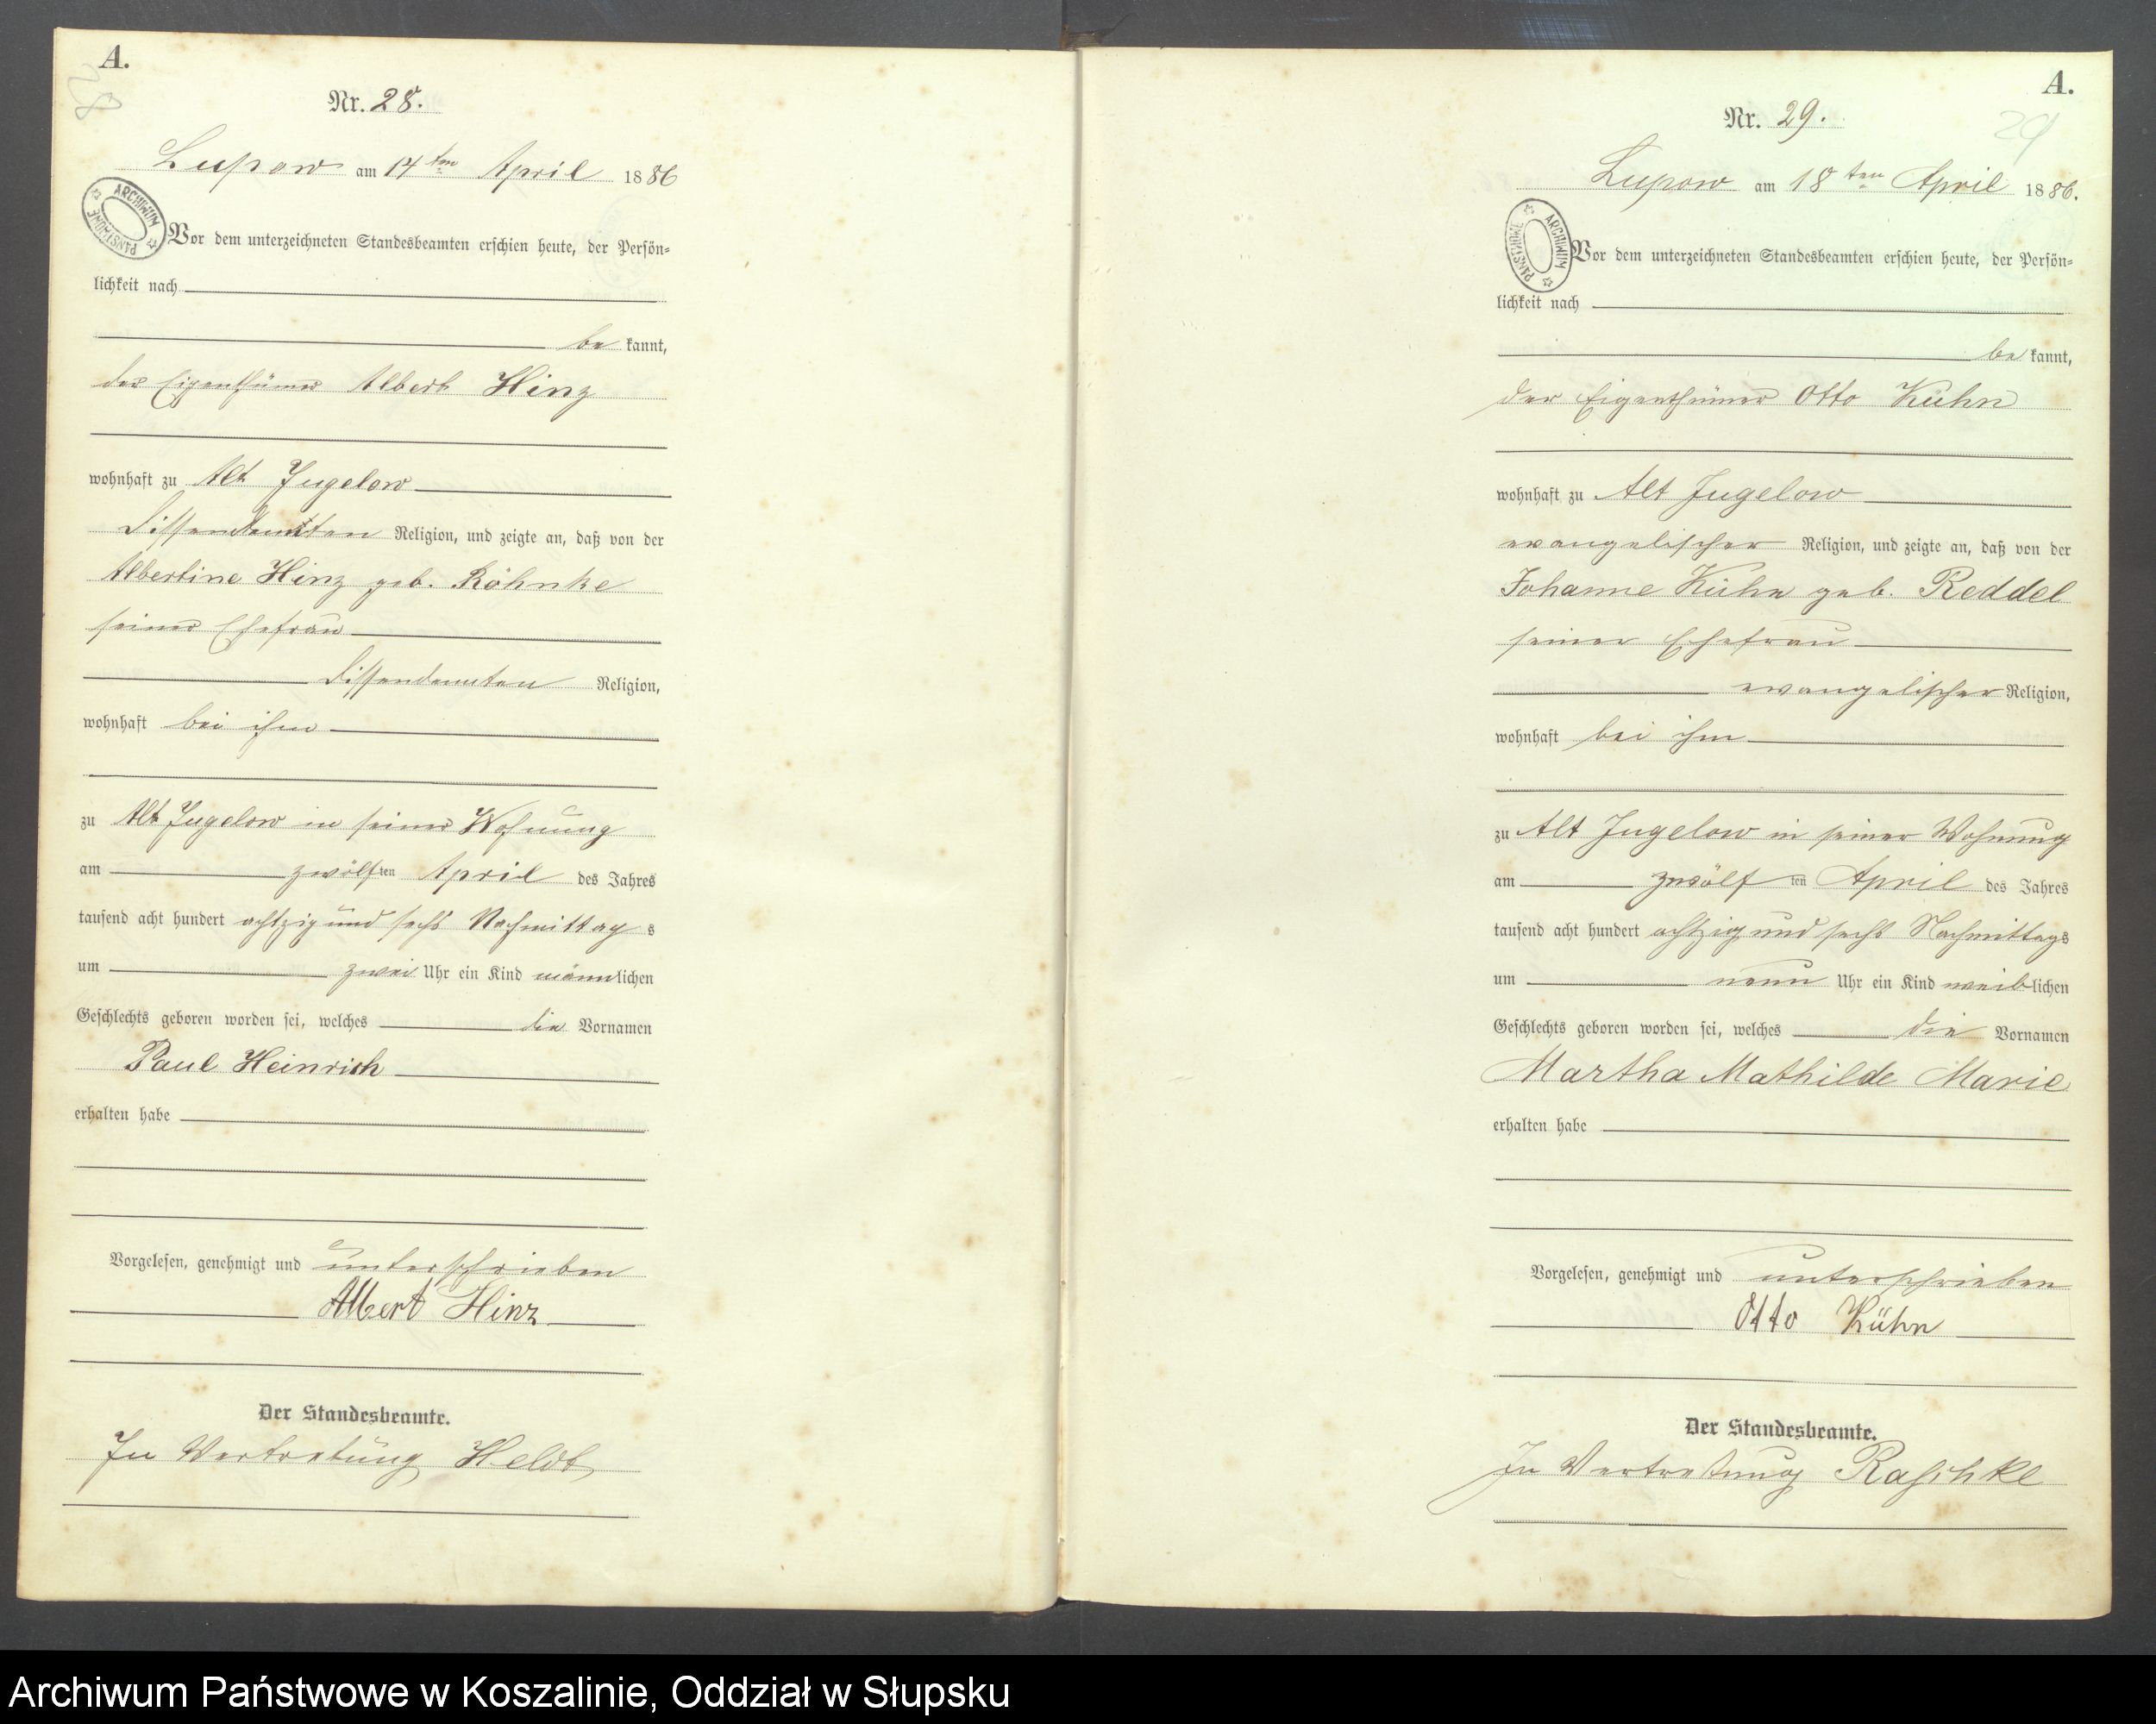 A.
28
Nr. 28.
Lupow am 14ten April 1886
ARCHIWUM PAŃSTWOWE
Vor dem unterzeichneten Standesbeamten erschien heute, der Persön=
lichkeit nach
be kannt,
der Eigenthümer Albert Hinz
wohnhaft zu Alt Jugelow
Religion, und zeigte an, daß von der
Albertine Hinz geb. Röhnke
seiner Ehefrau
Religion,
wohnhaft bei ihm
zu Alt Jugelow in seiner Wohnung
am zwölften April des Jahres
tausend acht hundert achtzig und sechs Nachmittags
um zwei Uhr ein Kind männlichen
Geschlechts geboren worden sei, welches die Vornamen
Paul Heinrich
erhalten habe
Vorgelesen, genehmigt und unterschrieben
Albert Hinz
Der Standesbeamte.
In Vertretung Heldt
A.
29
Nr. 29.
Lupow am 18ten April 1886.
ARCHIWUM PAŃSTWOWE
Vor dem unterzeichneten Standesbeamten erschien heute, der Persön=
lichkeit nach
be kannt,
der Eigenthümer Otto Kühn
wohnhaft zu Alt Jugelow
evangelischer Religion, und zeigte an, daß von der
Johanne Kühn geb. Reddel
seiner Ehefrau
evangelischer Religion,
wohnhaft bei ihm
zu Alt Jugelow in seiner Wohnung
am zwölf ten April des Jahres
tausend acht hundert achtzig und sechs Nachmittags
um neun Uhr ein Kind weiblichen
Geschlechts geboren worden sei, welches die Vornamen
Martha Mathilde Marie
erhalten habe
Vorgelesen, genehmigt und unterschrieben
Otto Kühn
Der Standesbeamte.
In Vertretung Raschke
Archiwum Państwowe w Koszalinie, Oddział w Słupsku